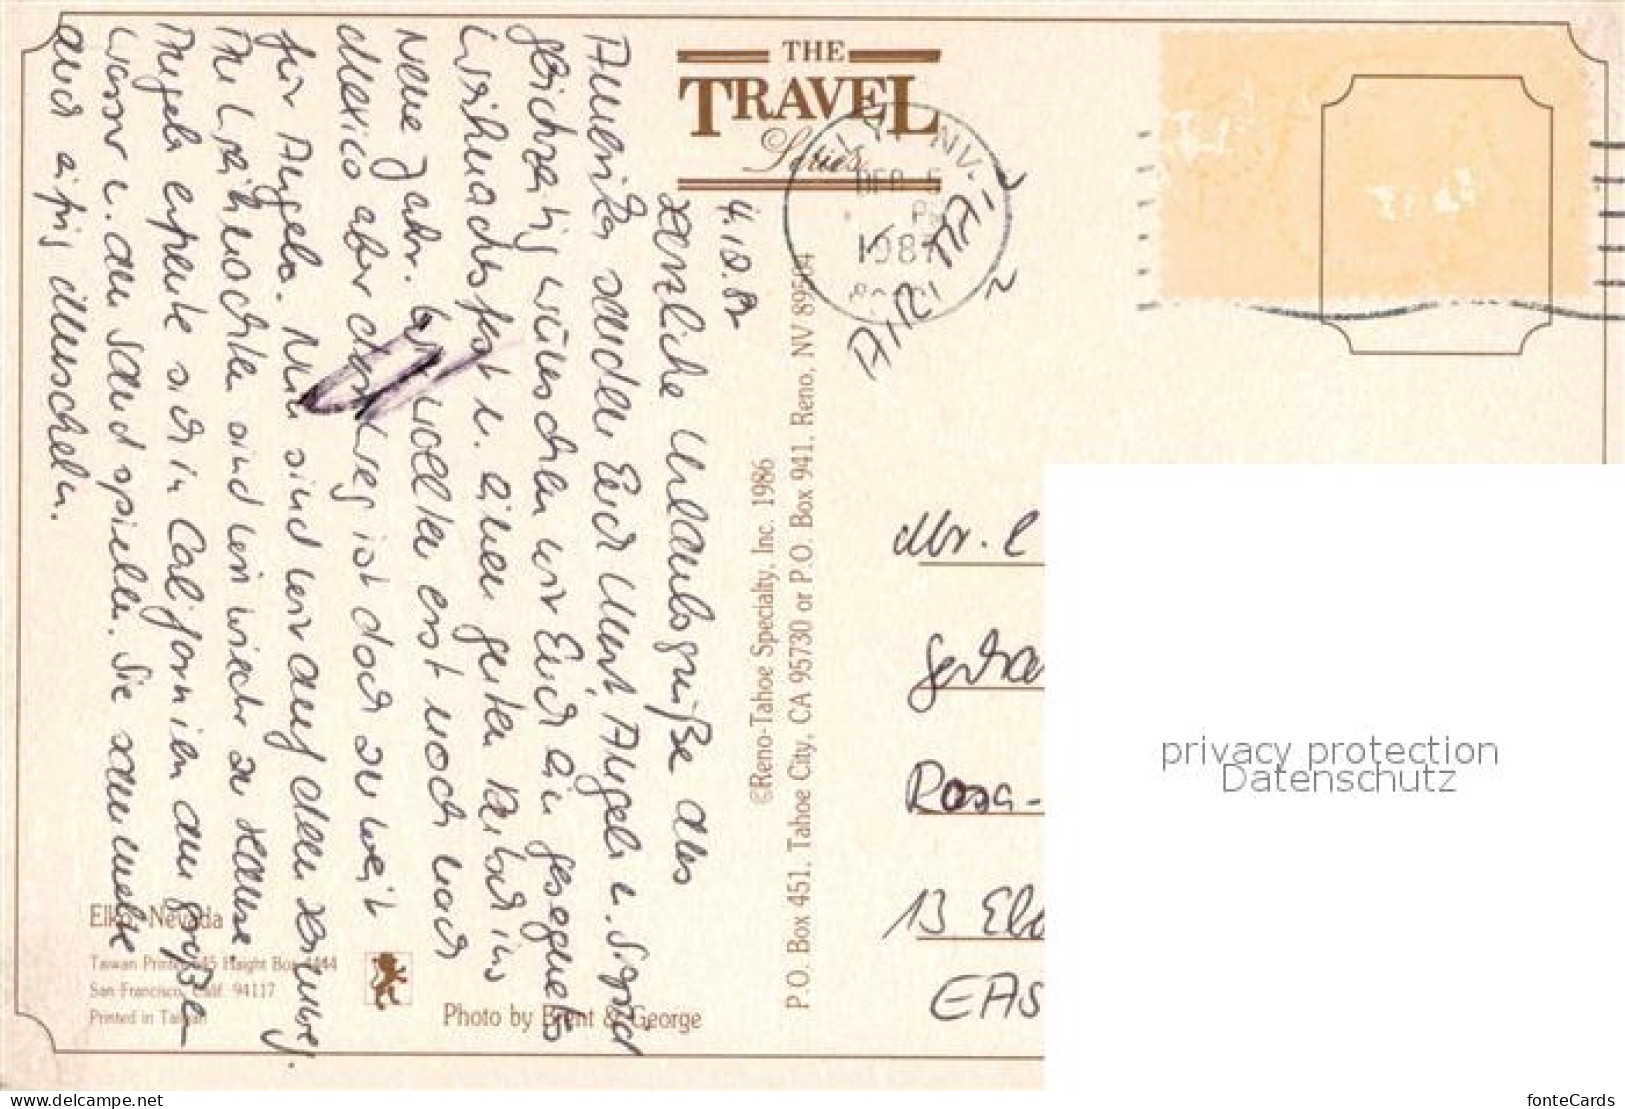 THE
TRAVEL
Series
NV.
DEC 5
PM
1987
AIR MAIL
4.12.87
Herzliche Urlaubsgrüße aus
Amerika senden Euch Uwe, Angela u. Sigrid
gleichzeitig wünschen wir Euch ein gesegnetes
Weihnachtsfest u. einen guten Rutsch ins
Neue Jahr. Wir wollten erst noch nach
Mexico aber der Weg ist doch zu weit
für Angela. Nun sind wir auf dem Heimweg.
Weihnachten sind wir wieder zu Hause.
Angela expente sich in Californien am großen
Wasser u. am Sand spielen. Sie sammelte
auch eifrig Muscheln.
©Reno-Tahoe Specialty, Inc. 1986
P.O. Box 451, Tahoe City, CA 95730 or P.O. Box 941, Reno, NV 89504
Elko, Nevada
Taiwan Printer 445 Haight Box 4444
San Francisco, Calif. 94117
Printed in Taiwan
Photo by Brent & George
Mr. E
Gerha
Rosa-
13 Eb
EAS
privacy protection
Datenschutz
www.delcampe.net
fonteCards